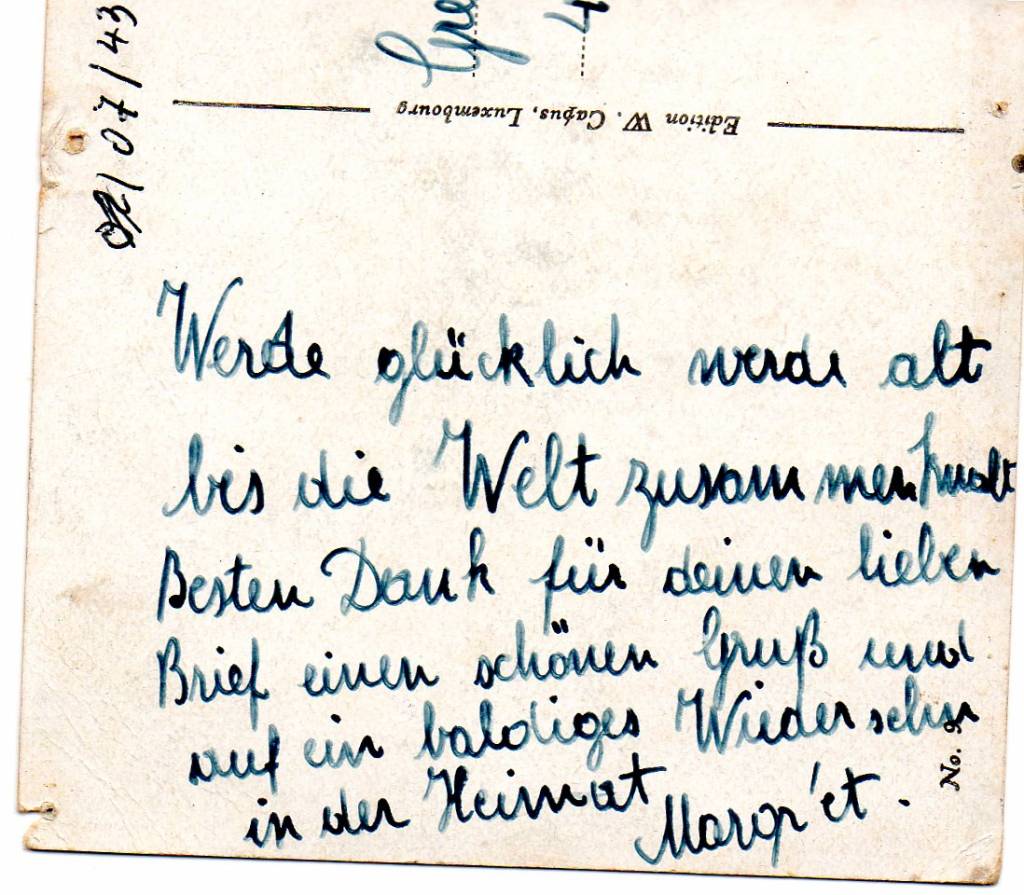 02/07/43
Edition W. Capus, Luxembourg
Werde glücklich werde alt
bis die Welt zusammenknalt
Besten Dank für deinen lieben
Brief einen schönen Gruß und
auf ein baldiges Wiedersehn
in der Heimat
Margr'et.